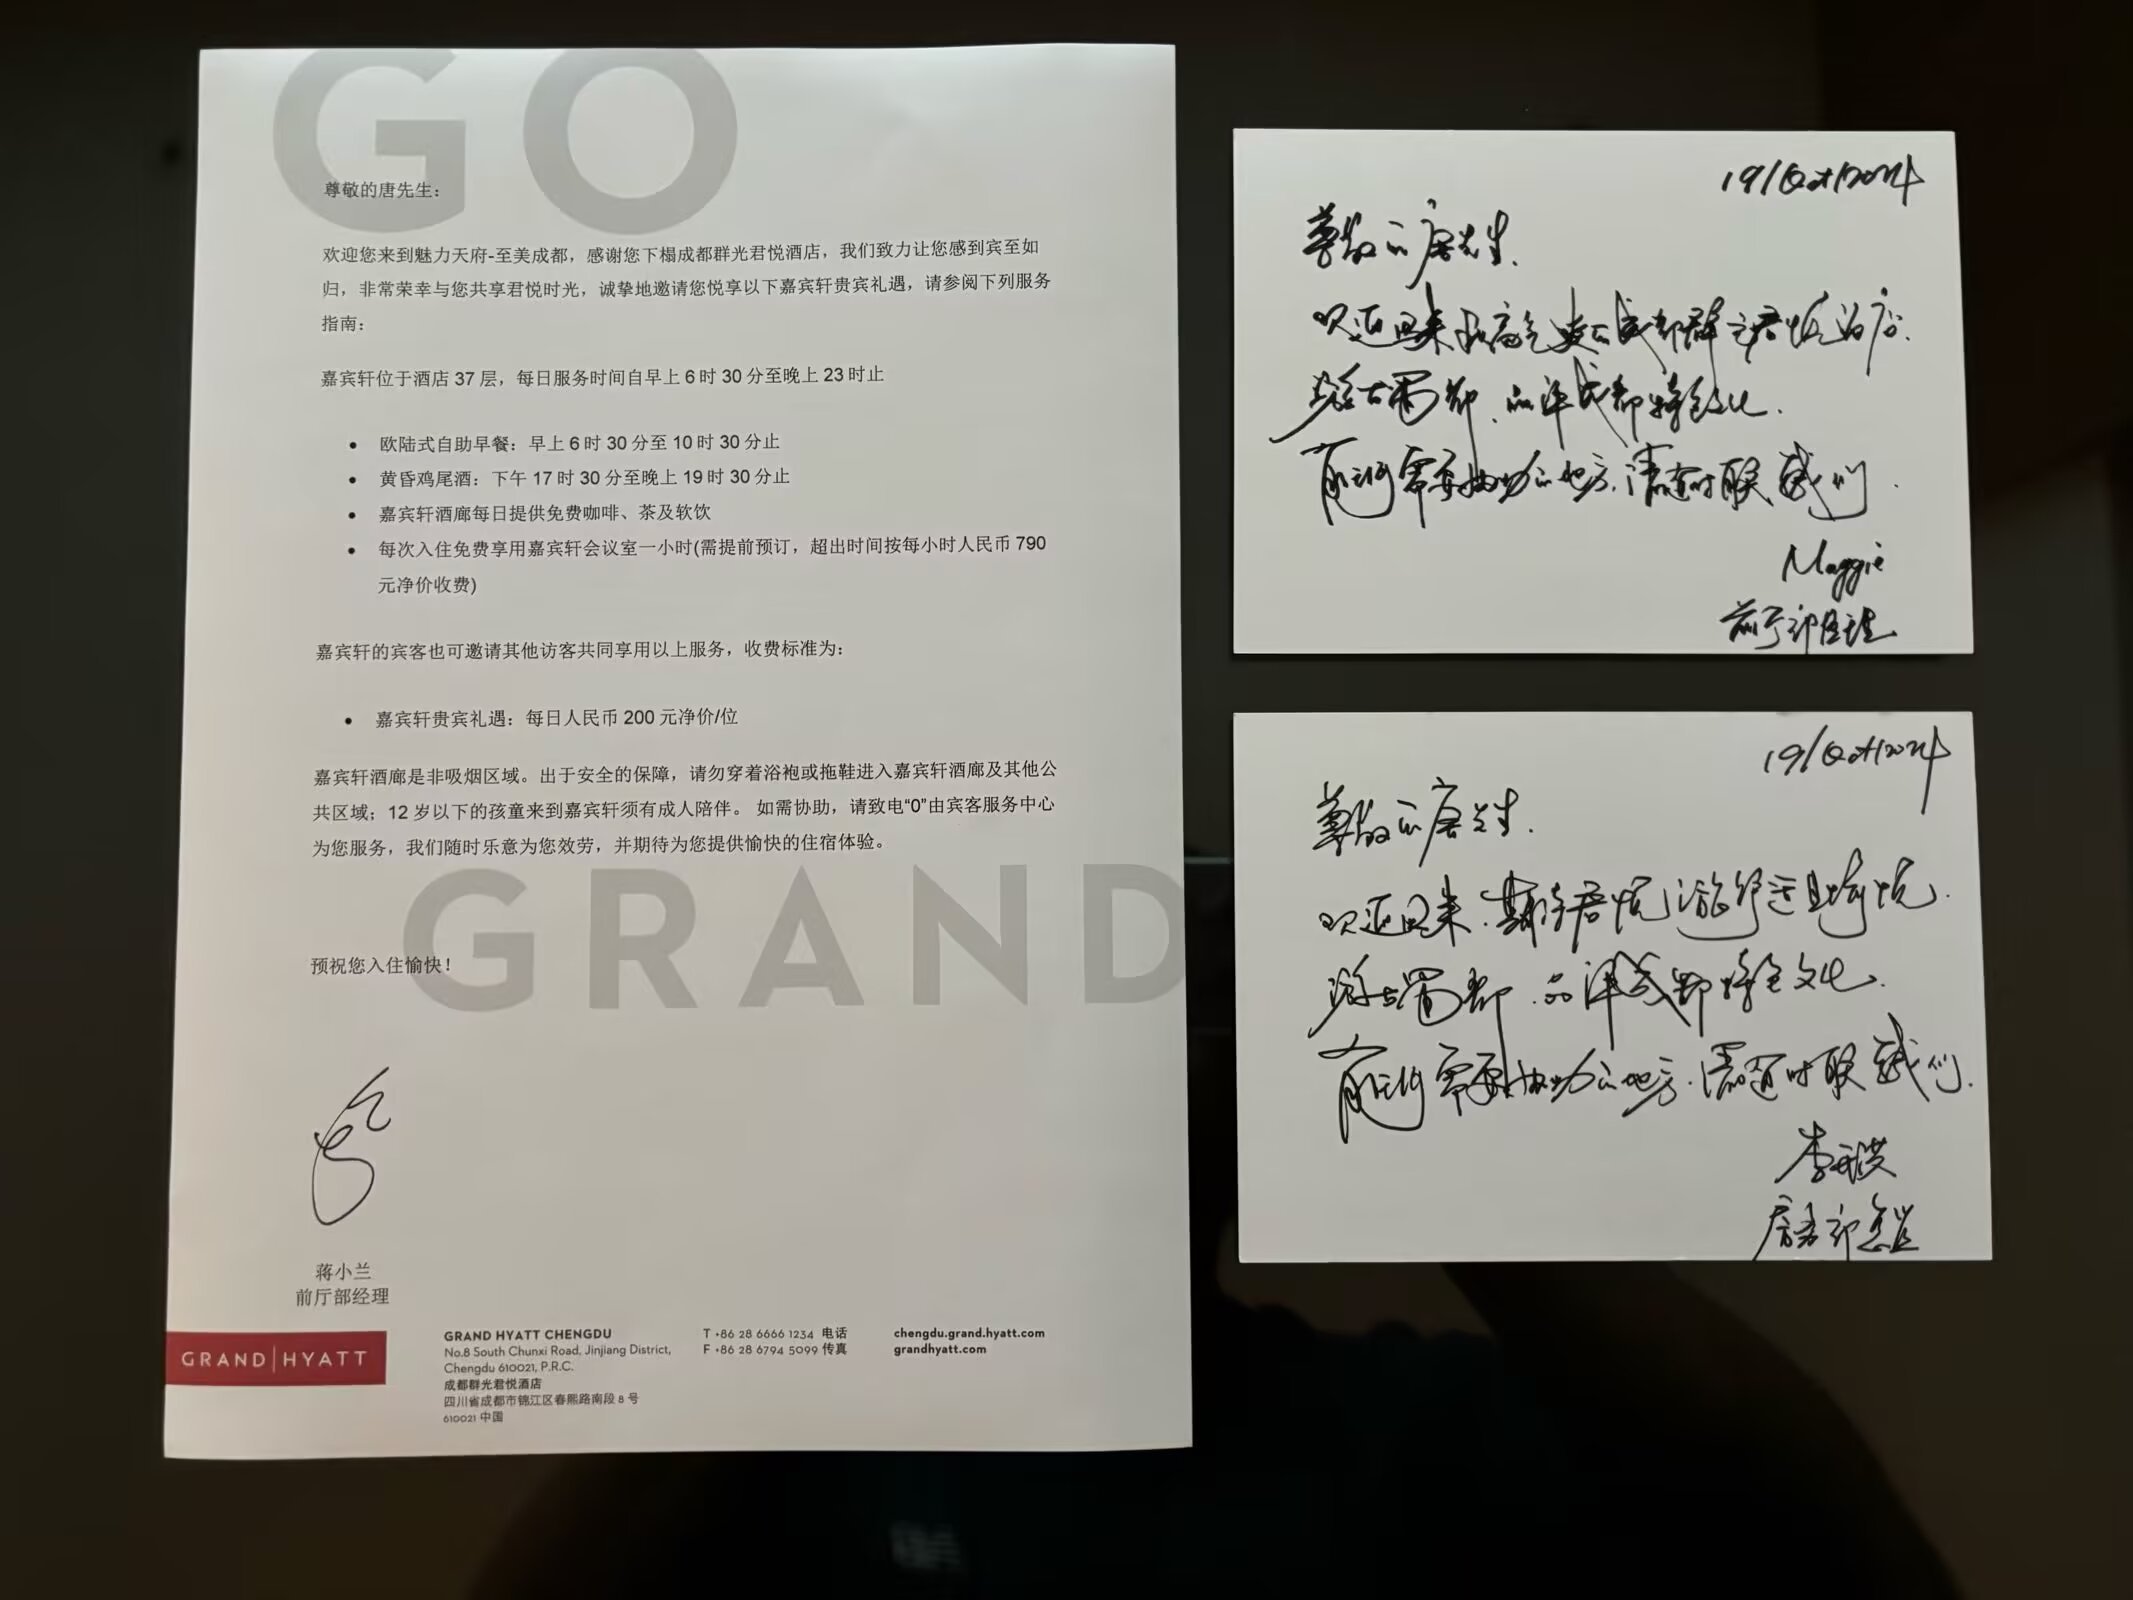 GO
尊敬的唐先生：
欢迎您来到魅力天府-至美成都，感谢您下榻成都群光君悦酒店，我们致力让您感到宾至如
归，非常荣幸与您共享君悦时光，诚挚地邀请您悦享以下嘉宾轩贵宾礼遇，请参阅下列服务
指南：
嘉宾轩位于酒店 37 层，每日服务时间自早上 6 时 30 分至晚上 23 时止
• 欧陆式自助早餐：早上 6 时 30 分至 10 时 30 分止
• 黄昏鸡尾酒：下午 17 时 30 分至晚上 19 时 30 分止
• 嘉宾轩酒廊每日提供免费咖啡、茶及软饮
• 每次入住免费享用嘉宾轩会议室一小时(需提前预订，超出时间按每小时人民币 790
元净价收费)
嘉宾轩的宾客也可邀请其他访客共同享用以上服务，收费标准为：
• 嘉宾轩贵宾礼遇：每日人民币 200 元净价/位
嘉宾轩酒廊是非吸烟区域。出于安全的保障，请勿穿着浴袍或拖鞋进入嘉宾轩酒廊及其他公
共区域；12 岁以下的孩童来到嘉宾轩须有成人陪伴。 如需协助，请致电“0”由宾客服务中心
为您服务，我们随时乐意为您效劳，并期待为您提供愉快的住宿体验。
GRAND
预祝您入住愉快！
蒋小兰
前厅部经理
GRAND | HYATT
GRAND HYATT CHENGDU
No.8 South Chunxi Road, Jinjiang District,
Chengdu 610021, P.R.C.
成都群光君悦酒店
四川省成都市锦江区春熙路南段 8 号
610021 中国
T +86 28 6666 1234 电话
F +86 28 6794 5099 传真
chengdu.grand.hyatt.com
grandhyatt.com
19/Oct/2024
尊敬的唐先生.
欢迎回来 成都群光君悦酒店.
游古蜀都、品味成都特色文化.
需要协助的地方，请随时联系我们.
Maggie
前厅部经理
19/Oct/2024
尊敬的唐先生.
欢迎回来.期待君悦之旅舒适且愉悦.
游古蜀都.品味成都特色文化.
需要协助的地方.请随时联系我们.
李
房务部总监